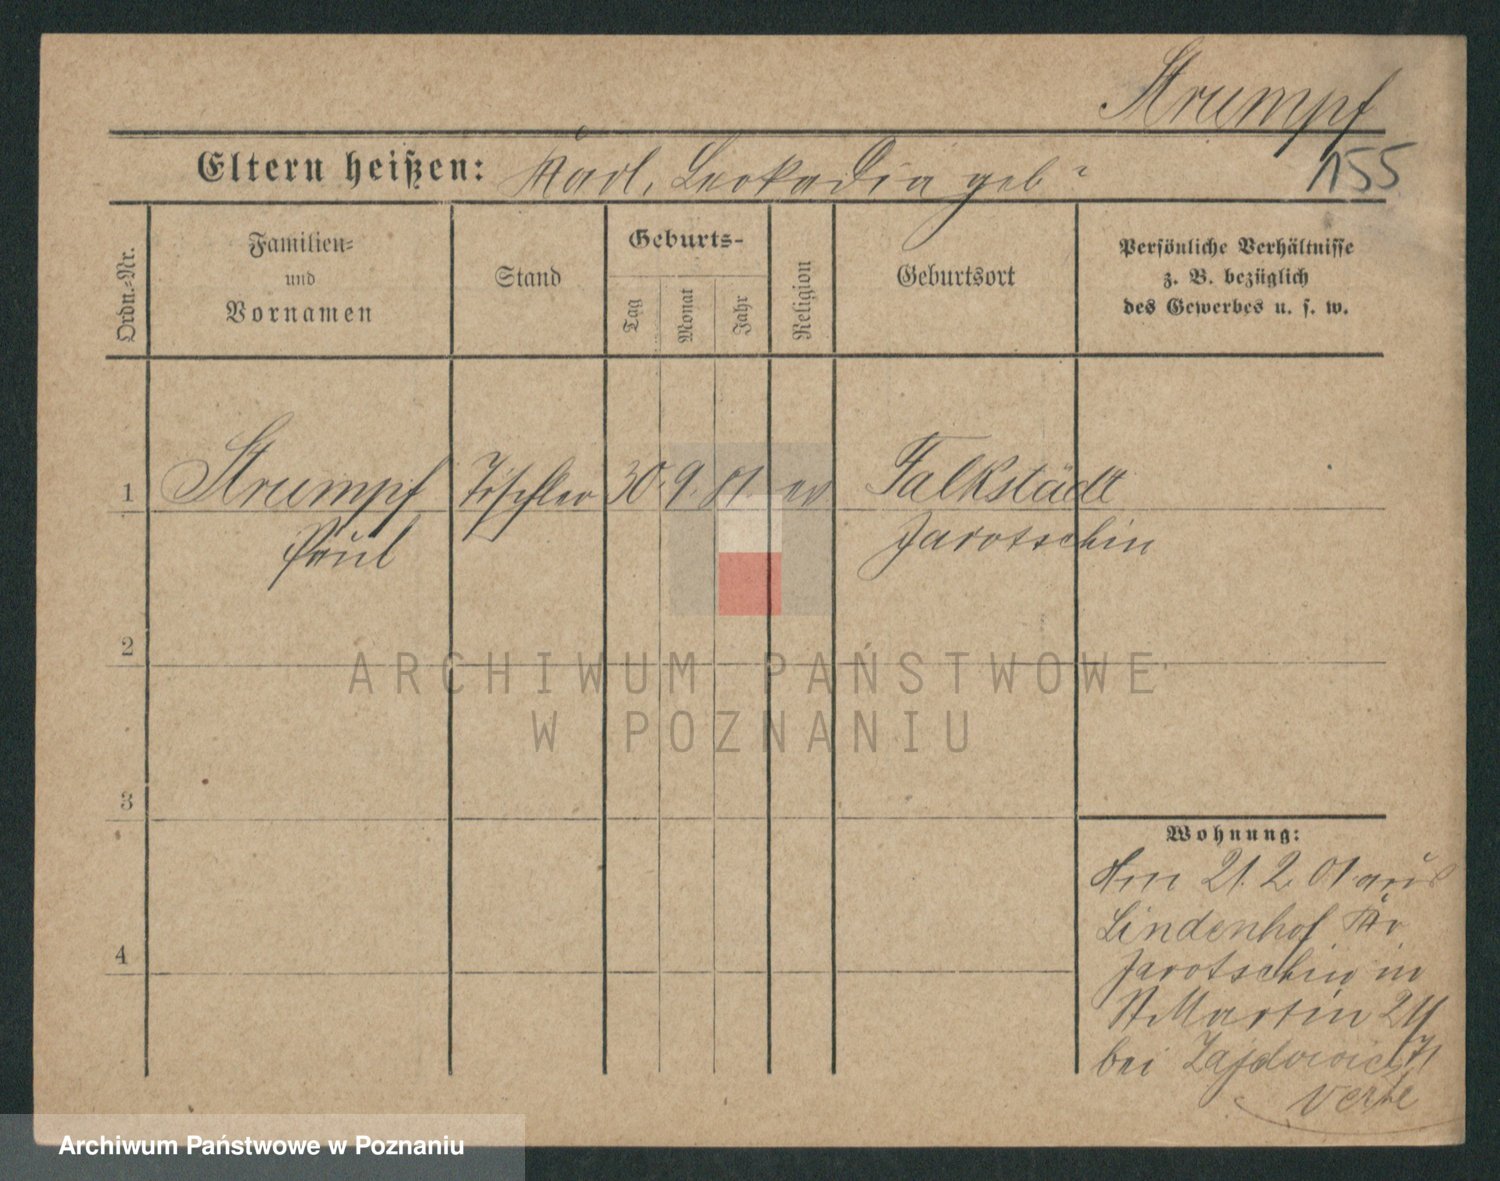 Strumpf
155
Eltern heißen: Karl, Leokadia geb ?
Ordn.-Nr.
Familien- und Vornamen
Stand
Geburts-
Tag
Monat
Jahr
Religion
Geburtsort
Persönliche Verhältnisse
z. B. bezüglich
des Gewerbes u. s. w.
1 Strumpf Tischler 30. 9. 81 ev Falkstädt
Paul Jarotschin
2
ARCHIWUM PAŃSTWOWE
W POZNANIU
3
Wohnung:
Am 21. 2. 01 aus
Lindenhof Kr
4
Jarotschin in
St Martin 24
bei Zajdowicz
verte
Archiwum Państwowe w Poznaniu